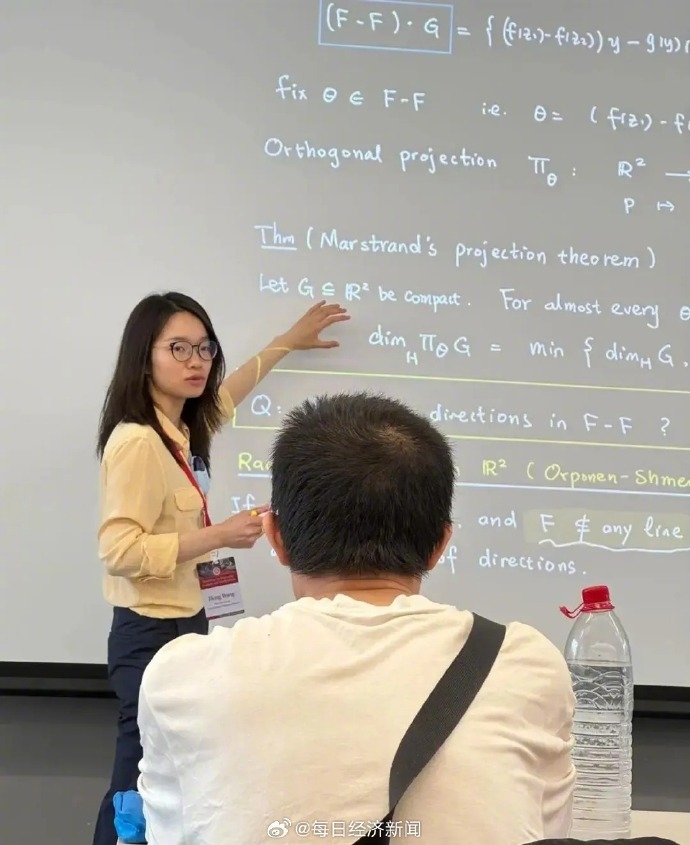 (F-F)·G = { (f(z₁)-f(z₂)) y - g(y)
fix θ ∈ F-F i.e. θ = ( f(z₁) - f
Orthogonal projection π_θ : ℝ² →
p ↦
Thm (Marstrand's projection theorem)
Let G ⊆ ℝ² be compact. For almost every θ
dim_H π_θ G = min { dim_H G,
Q: directions in F-F ?
ℝ² (Orponen-Shme
If and F ⊄ any line
of directions.
Hong Wang
@每日经济新闻